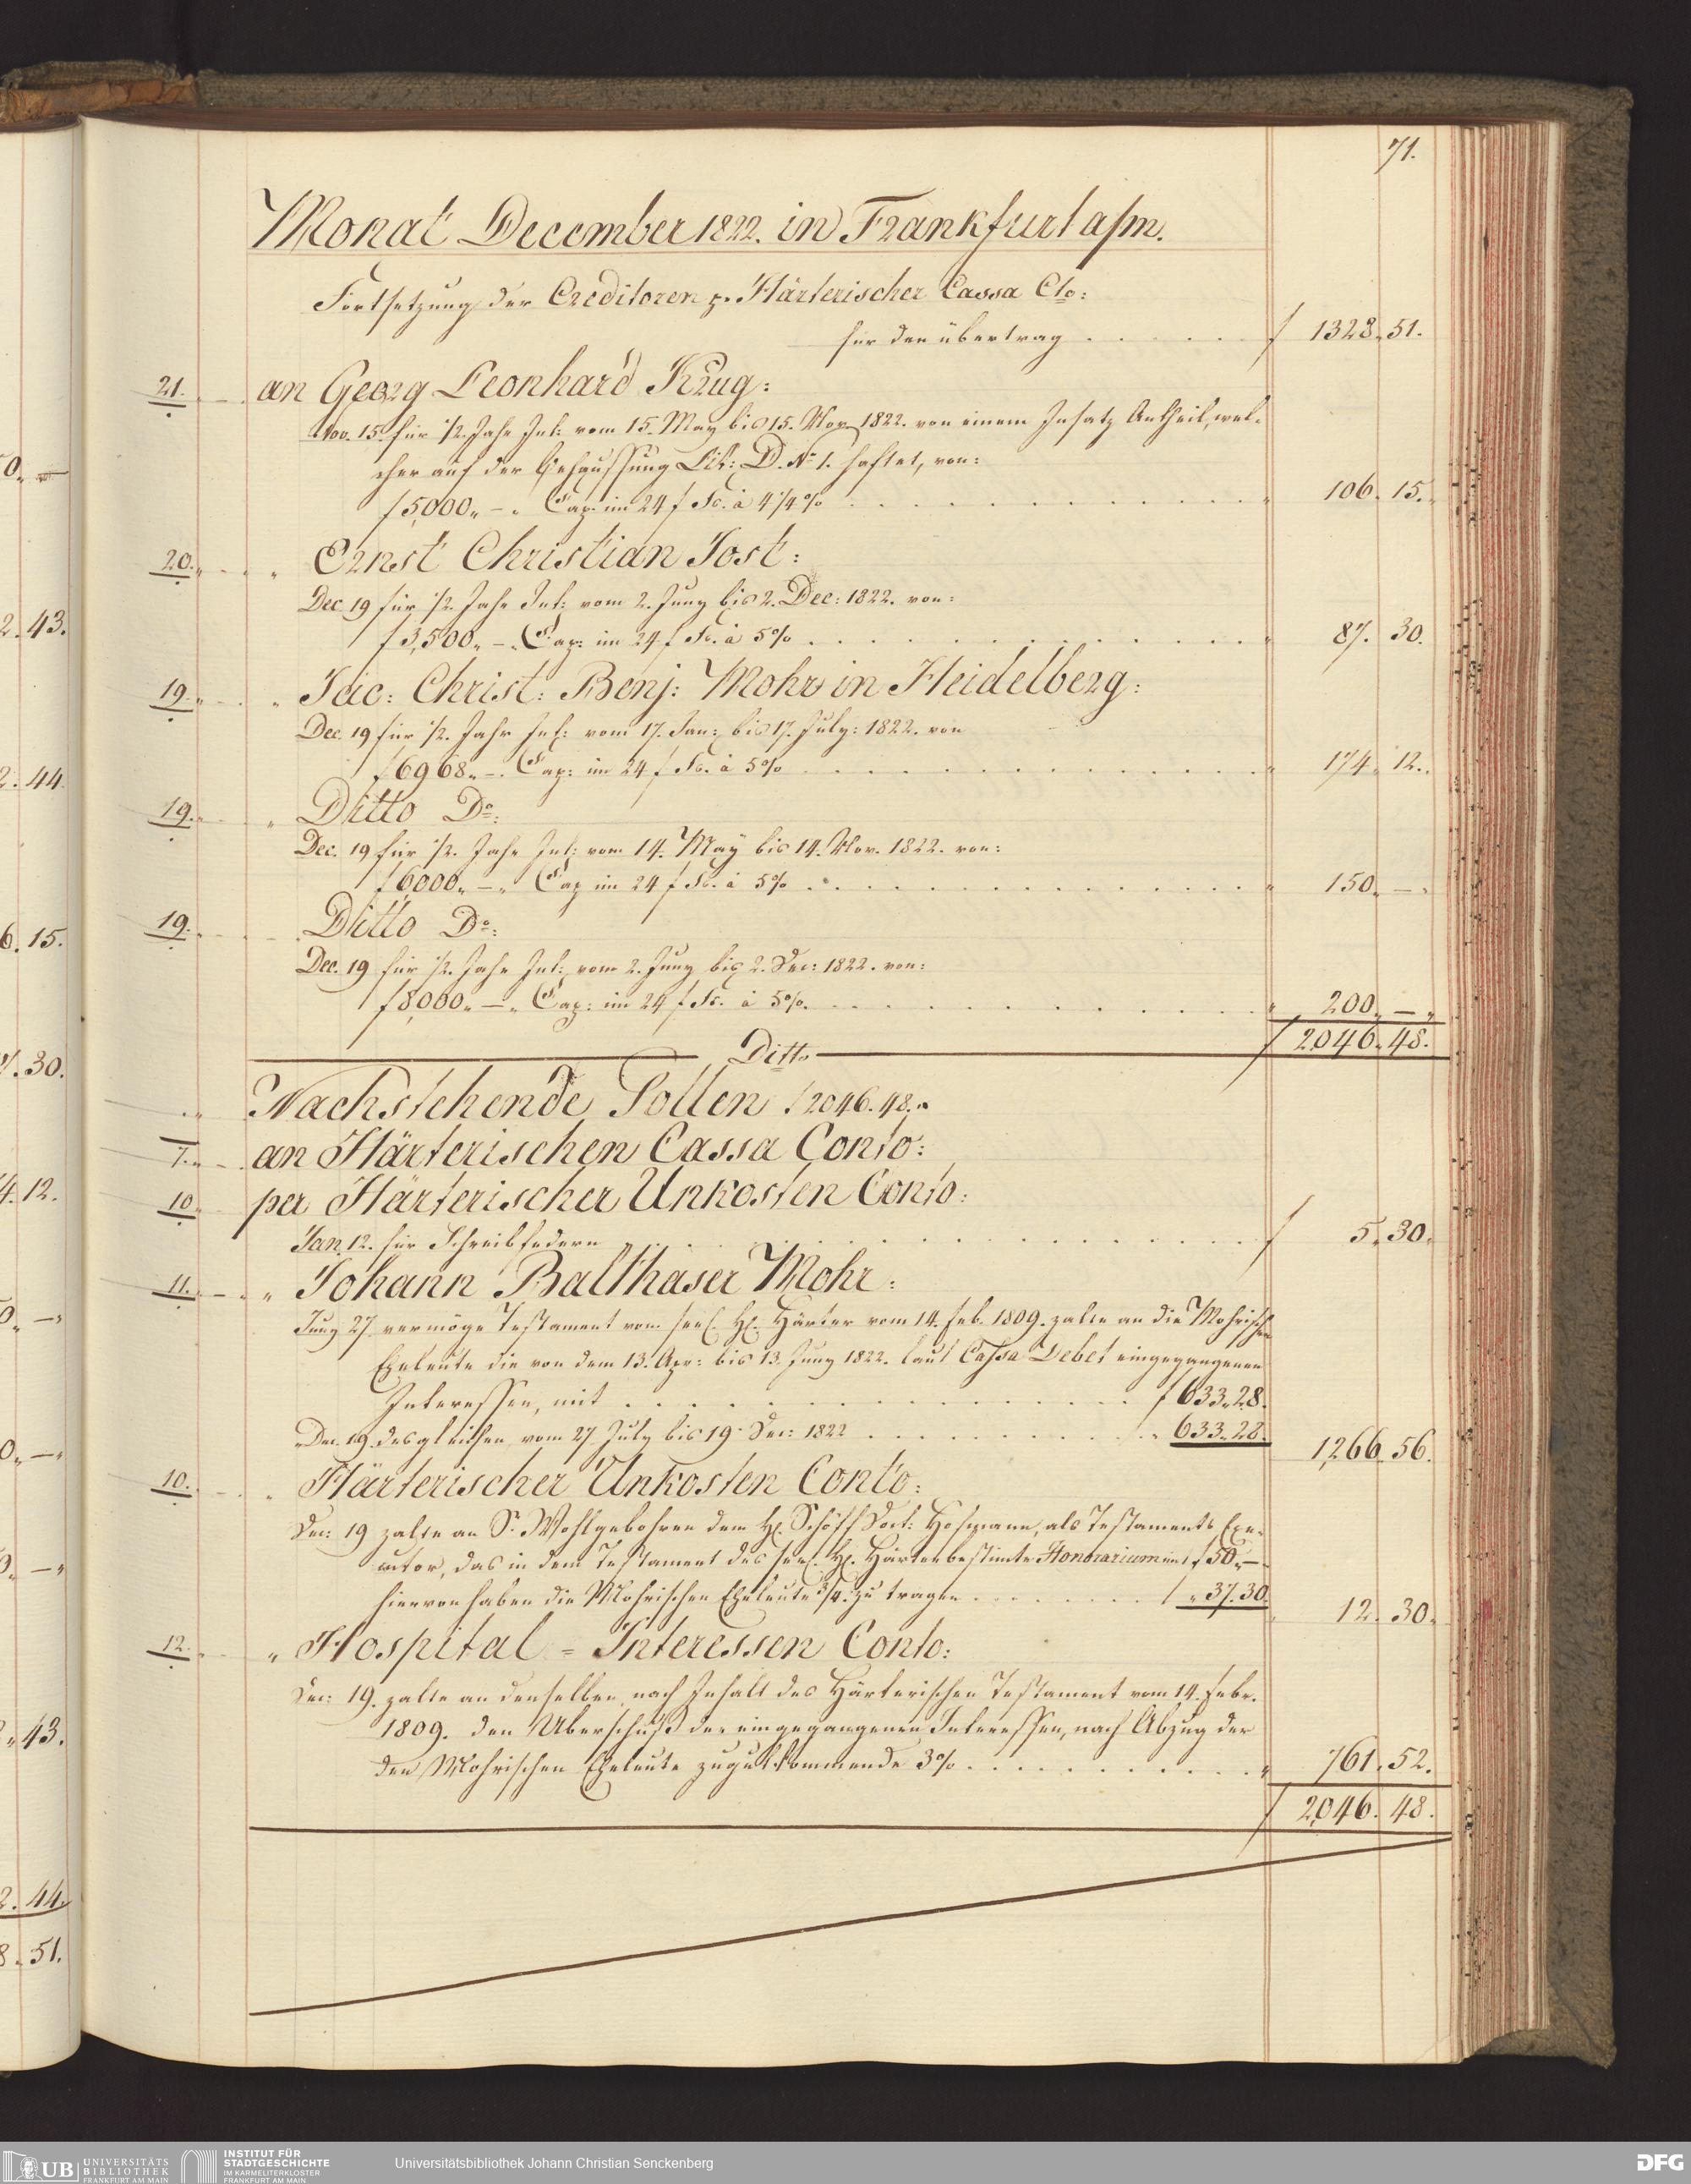 71.
Monat December 1822. in Frankfurt a/m.
Fortsetzung der Creditoren pr. Härterischer Cassa Cto:
für den übertrag . . . . . . f 1328. 51.
21. an Georg Leonhard Krug:
Nov. 15. für 1/2. Jahr Int: vom 15. May bis 15. Nov. 1822. von einem Insatz Antheil, wel-
cher auf der Behaussung Lit: D. No 1. haftet, von:
f 5,000„ – „ Cap. im 24 f Fs. à 4 1/4 % . . . . 106. 15.
20. „ Ernst Christian Jost:
Dec 19 für 1/2. Jahr Int: vom 2. Juny bis 2. Dec: 1822. von:
f 3,500„ – „ Cap: im 24 f Fs. à 5 % . . . . 87. 30.
19. „ Jac: Christ: Benj: Mohr in Heidelberg:
Dec. 19 für 1/2. Jahr Int: vom 17. Jan: bis 17. July: 1822. von
f 6968„ – „ Cap: im 24 f Fs. à 5 % . . . . 174. 12.
19. „ Ditto Do:
Dec. 19 für 1/2. Jahr Int: vom 14. May bis 14. Nov. 1822. von:
f 6,000„ – „ Cap im 24 f Fs. à 5 % . . . . 150„ –„
19. Ditto Do:
Dec. 19 für 1/2. Jahr Int: vom 2. Juny bis 2. Dec: 1822. von:
f 8,000„ – „ Cap: im 24 f Fs. à 5 %. . . . . 200„ –„
f 2,046. 48.
Ditto
Nachstehende Sollen f 2046. 48.„
7. an Härterischen Cassa Conto:
10. per Härterischer Unkosten Conto:
Jan. 12. für Schreibfedern . . . . f 5. 30.
11. „ Johann Balthaser Mohr:
Juny 27 vermöge Testament vom seel. H. Härter vom 14. Feb. 1809. zalte an die Mohrischen
Eheleute die von dem 13. Apr: bis 13. Juny 1822. laut Cassa Debet eingegangenen
Interessen, mit . . . . f 633„ 28.
Dec. 19. desgleichen vom 27 July bis 19. Dec: 1822 . . . . „ 633„ 28. 1,266. 56.
10. „ Härterischer Unkosten Conto:
Dec: 19 zalte an S. Wohlgebohren dem H. Schöff Doct: Hofmann, als Testaments Exe-
cutor, das in dem Testament des seel. H. Härter bestimte Honorarium mit f 50„ –
hiervon haben die Mohrischen Eheleute 3/4. zu tragen . . . . „ 37. 30. 12. 30.
12. „ Hospital = Interessen Conto:
Dec: 19. zalte an denselben nach Inhalt des Härterischen Testament vom 14. Febr.
1809. den Überschuß der eingegangenen Interessen, nach Abzug der
den Mohrischen Eheleute zugutkommende 3 % . . . . „ 761. 52.
f 2,046. 48.
0„ –
2. 43.
2. 44.
6. 15.
7. 30.
4. 12.
0„ –„
0„ –„
0„ –„
2. 43.
2. 44.
8. 51.
UB UNIVERSITÄTS BIBLIOTHEK FRANKFURT AM MAIN
INSTITUT FÜR STADTGESCHICHTE IM KARMELITERKLOSTER FRANKFURT AM MAIN
Universitätsbibliothek Johann Christian Senckenberg
DFG